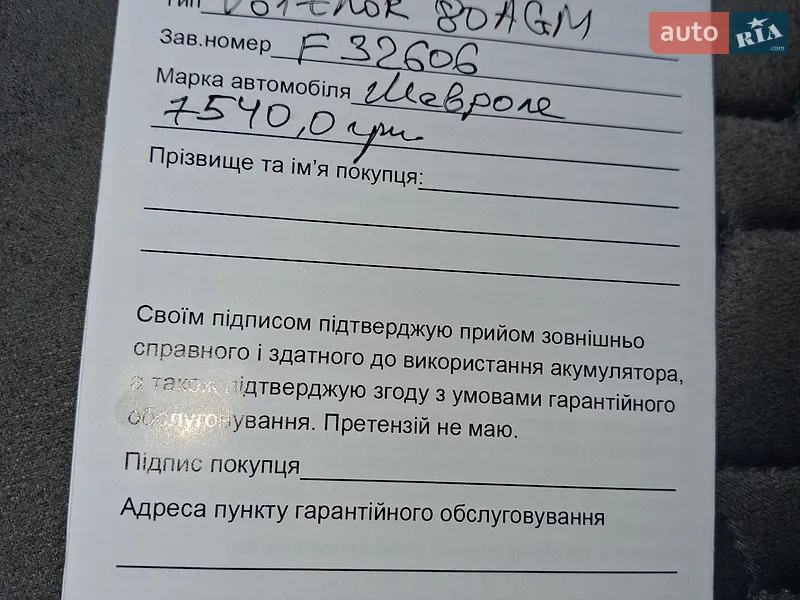 Тип 80AGM
auto RIA .com
Зав.номер F 32606
Марка автомобіля Шевроле
7540,0 грн
Прізвище та ім'я покупця:
Своїм підписом підтверджую прийом зовнішньо
справного і здатного до використання акумулятора,
а також підтверджую згоду з умовами гарантійного
обслуговування. Претензій не маю.
Підпис покупця
Адреса пункту гарантійного обслуговування